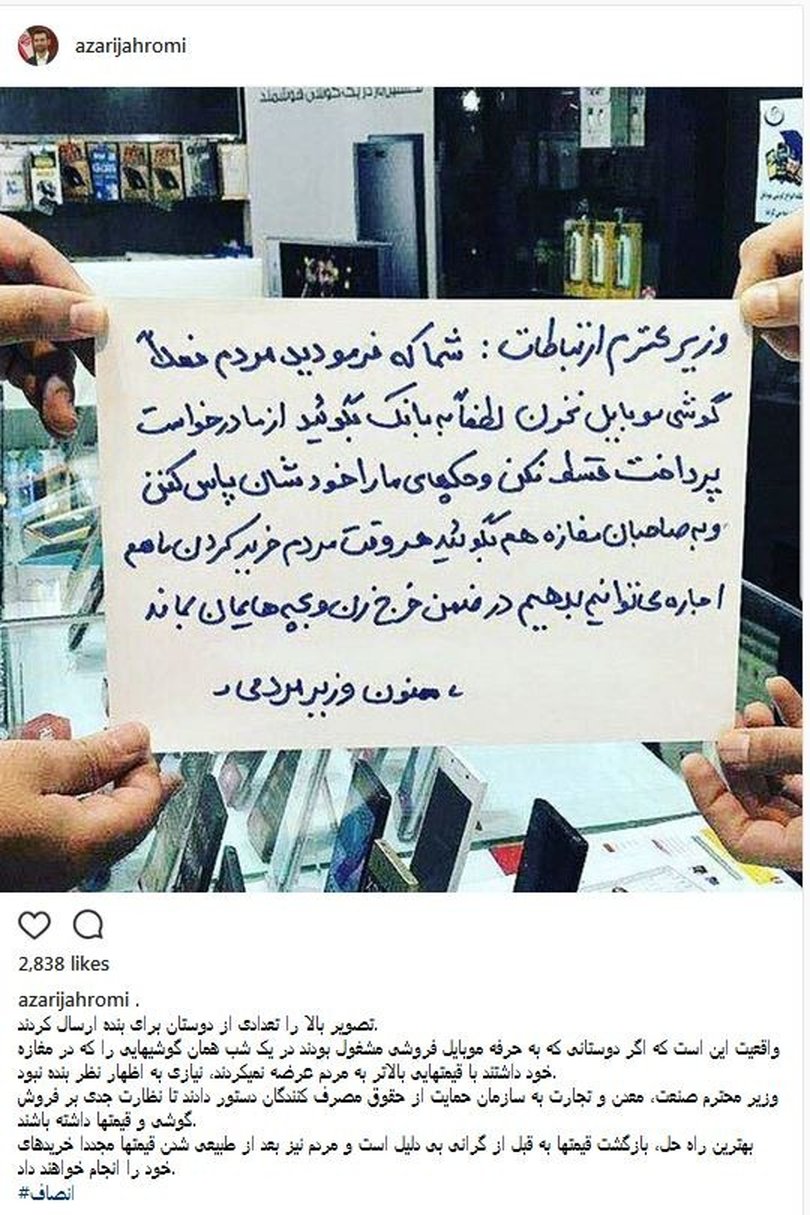 azarijahromi
نخستین بار در یک گوشی هوشمند
وزیر محترم ارتباطات : شما که فرمودید مردم فعلاً
گوشی موبایل نخرن لطفاً به بانک بگوئید از ما درخواست
پرداخت قسط نکن و چکهای ما را خودشان پاس کنن
و به صاحبان مغازه هم بگوئید هر وقت مردم خرید کردن ما هم
اجاره می توانیم بدهیم در ضمن خرج زن و بچه هایمان بماند
، ممنون وزیر مردمی ،
2,838 likes
azarijahromi .
تصویر بالا را تعدادی از دوستان برای بنده ارسال کردند.
واقعیت این است که اگر دوستانی که به حرفه موبایل فروشی مشغول بودند در یک شب همان گوشیهایی را که در مغازه
خود داشتند با قیمتهایی بالاتر به مردم عرضه نمیکردند، نیازی به اظهار نظر بنده نبود.
وزیر محترم صنعت، معدن و تجارت به سازمان حمایت از حقوق مصرف کنندگان دستور دادند تا نظارت جدی بر فروش
گوشی و قیمتها داشته باشند.
بهترین راه حل، بازگشت قیمتها به قبل از گرانی بی دلیل است و مردم نیز بعد از طبیعی شدن قیمتها مجددا خریدهای
خود را انجام خواهند داد.
#انصاف